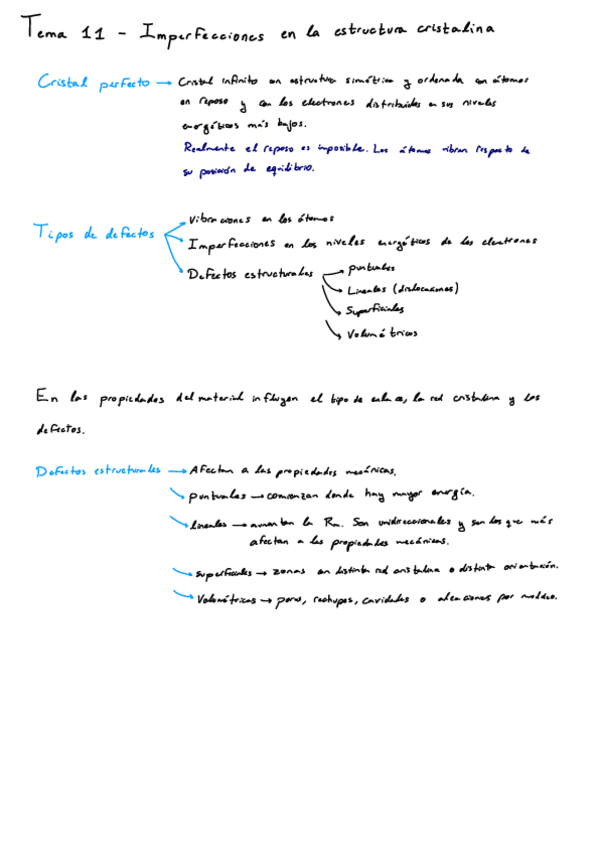 Tema 11 - Imperfecciones en la estructura cristalina
Cristal perfecto → Cristal infinito con estructura simétrica y ordenada con átomos
en reposo y con los electrones distribuidos en sus niveles
energéticos más bajos.
Realmente el reposo es imposible. Los átomos vibran respecto de
su posición de equilibrio.
Tipos de defectos
Vibraciones en los átomos
Imperfecciones en los niveles energéticos de los electrones
Defectos estructurales
puntuales
Lineales (dislocaciones)
Superficiales
Volumétricos
En las propiedades del material influyen el tipo de enlace, la red cristalina y los
defectos.
Defectos estructurales → Afectan a las propiedades mecánicas.
puntuales → comienzan donde hay mayor energía.
lineales → aumentan la Rm. Son unidireccionales y son los que más
afectan a las propiedades mecánicas.
superficiales → zonas con distinta red cristalina o distinta orientación.
Volumétricos → poros, rechupes, cavidades o aleaciones por moldeo.